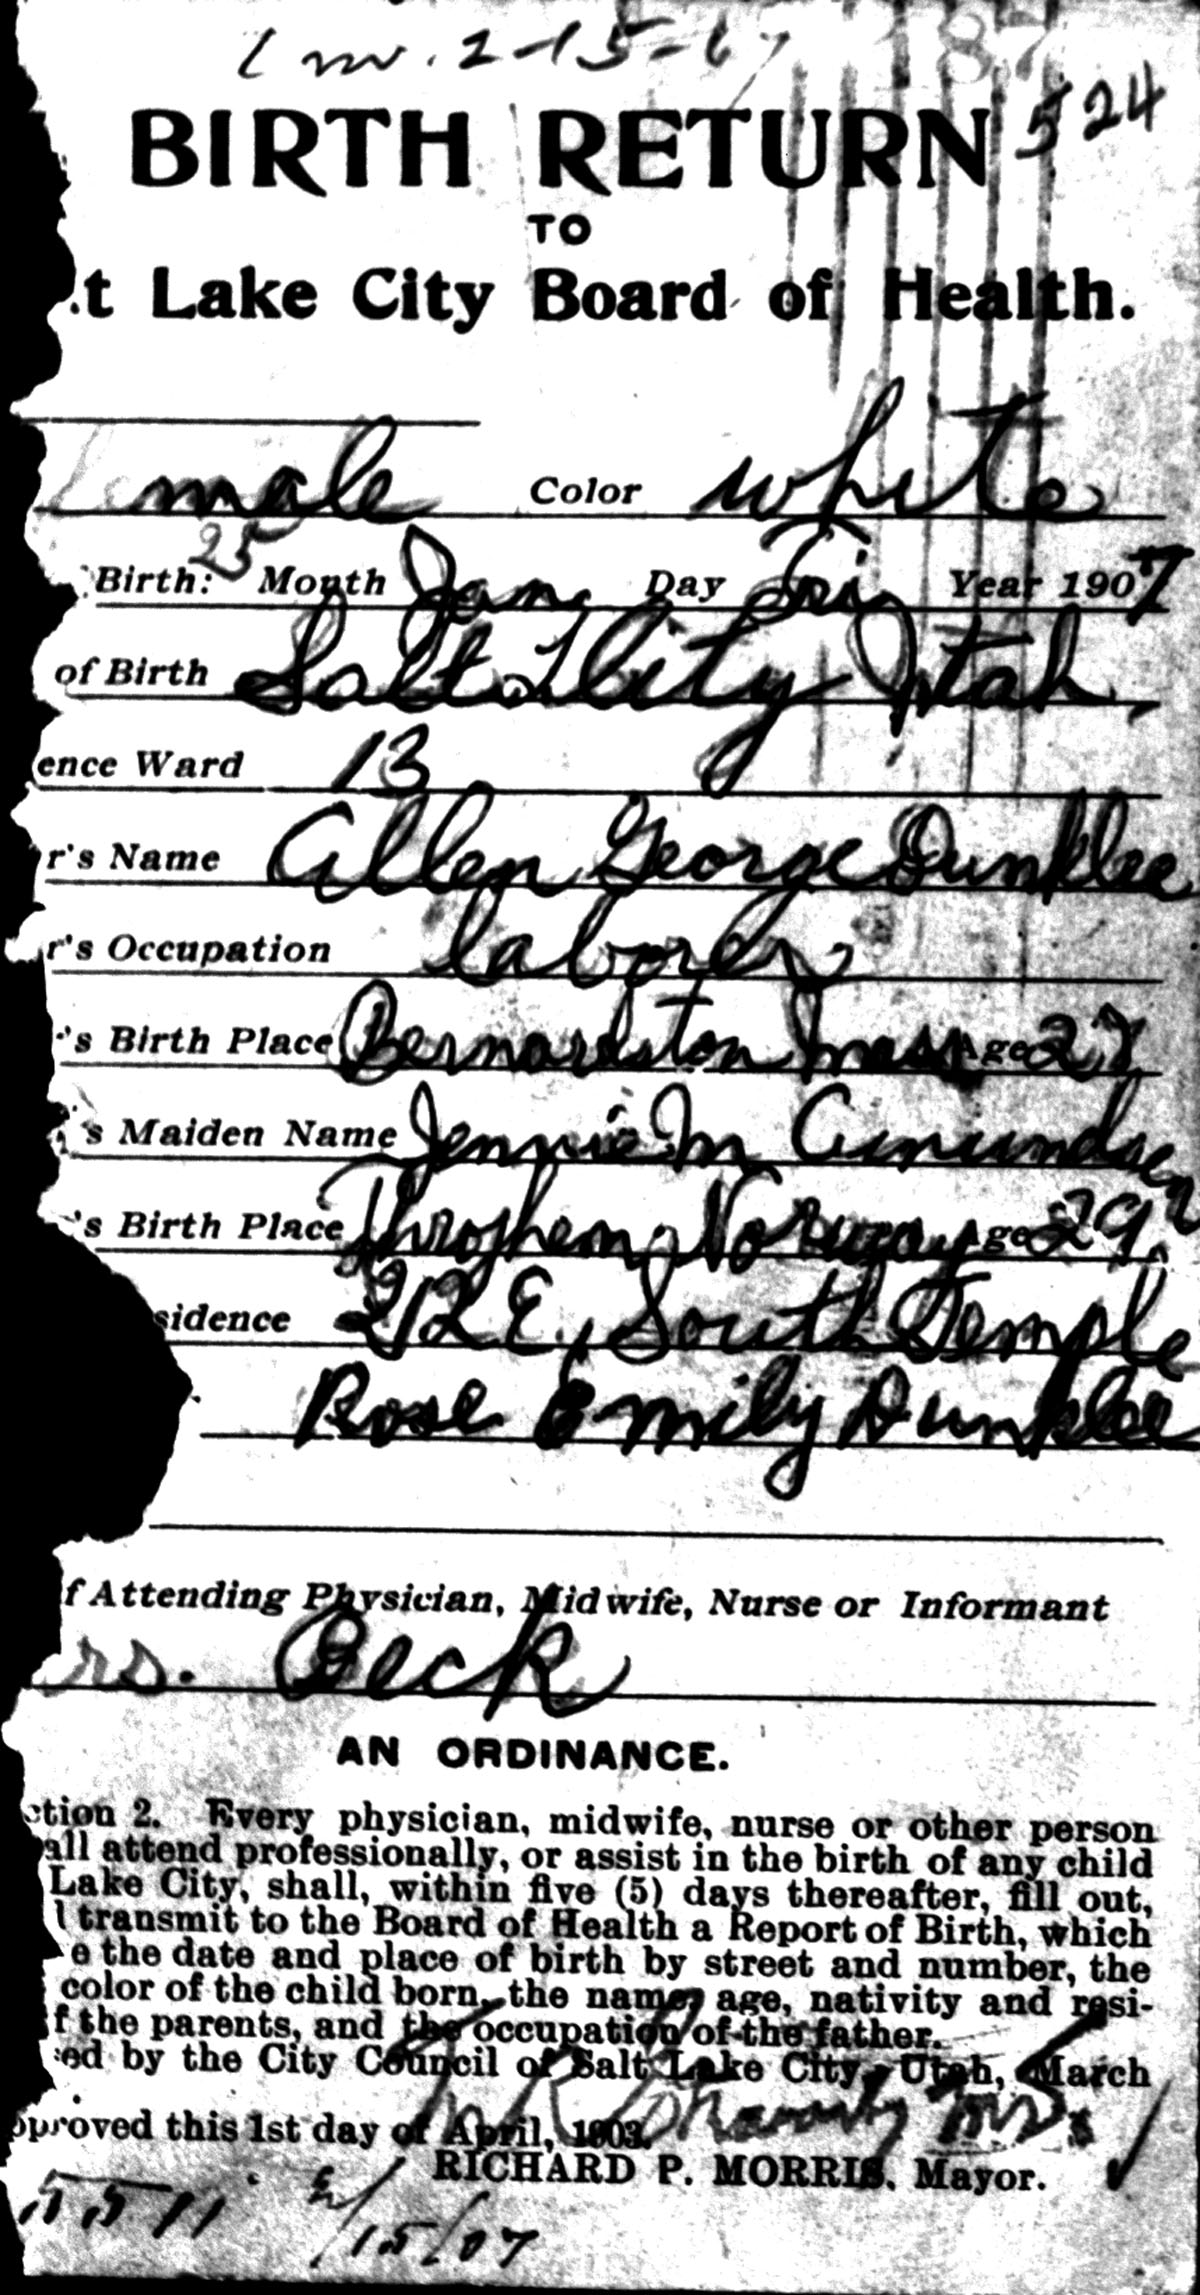 2-15-07
524
BIRTH RETURN
TO
t Lake City Board of Health.
emale Color white
25
Birth: Month Jan Day Fri Year 1907
of Birth Salt L City Utah
ence Ward 13
r's Name Allen George Dunklee
r's Occupation laborer
's Birth Place Bernardston Mass Age 27
's Maiden Name Jennie M Amundsen
's Birth Place Norway Age 29
sidence 212 E, South Temple
Rose Emily Dunklee
f Attending Physician, Midwife, Nurse or Informant
rs. Beck
AN ORDINANCE.
ction 2. Every physician, midwife, nurse or other person
all attend professionally, or assist in the birth of any child
Lake City, shall, within five (5) days thereafter, fill out,
l transmit to the Board of Health a Report of Birth, which
e the date and place of birth by street and number, the
color of the child born, the name, age, nativity and resi-
f the parents, and the occupation of the father.
sed by the City Council of Salt Lake City, Utah, March
pproved this 1st day of April, 1903.
RICHARD P. MORRIS, Mayor.
2/15/07